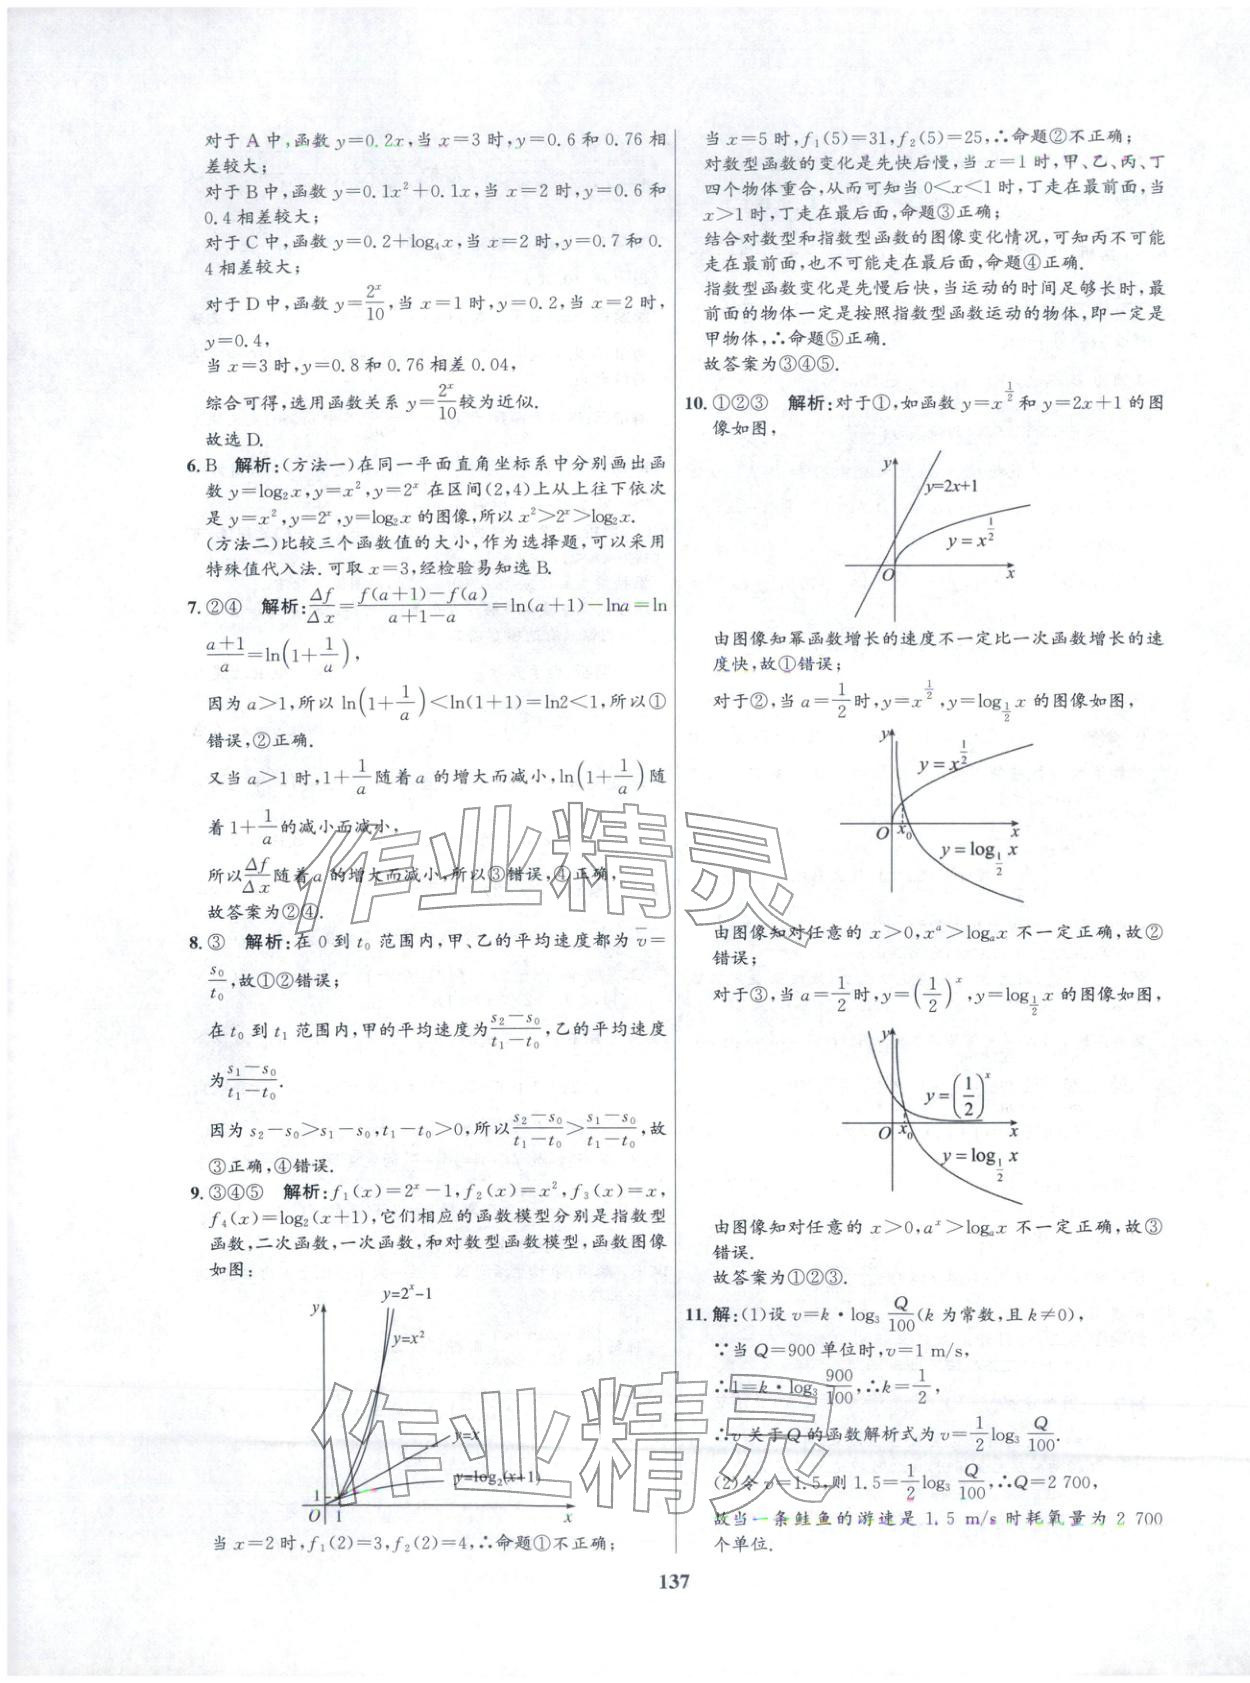 对于 A 中,函数 y=0.2x,当 x=3 时,y=0.6 和 0.76 相
差较大;
对于 B 中,函数 y=0.1x²+0.1x,当 x=2 时,y=0.6 和
0.4 相差较大;
对于 C 中,函数 y=0.2+log₄x,当 x=2 时,y=0.7 和 0.
4 相差较大;
对于 D 中,函数 y=2^x/10,当 x=1 时,y=0.2,当 x=2 时,
y=0.4,
当 x=3 时,y=0.8 和 0.76 相差 0.04,
综合可得,选用函数关系 y=2^x/10 较为近似.
故选 D.
6. B 解析:(方法一)在同一平面直角坐标系中分别画出函
数 y=log₂x,y=x²,y=2^x 在区间(2,4)上从上往下依次
是 y=x²,y=2^x,y=log₂x 的图像,所以 x²>2^x>log₂x.
(方法二)比较三个函数值的大小,作为选择题,可以采用
特殊值代入法.可取 x=3,经检验易知选 B.
7. ②④ 解析:Δf/Δx=(f(a+1)-f(a))/(a+1-a)=ln(a+1)-lna=ln
(a+1)/a=ln(1+1/a),
因为 a>1,所以 ln(1+1/a)<ln(1+1)=ln2<1,所以①
错误,②正确.
又当 a>1 时,1+1/a 随着 a 的增大而减小,ln(1+1/a)随
着 1+1/a 的减小而减小,
所以 Δf/Δx 随着 a 的增大而减小,所以③错误,④正确,
故答案为②④.
8. ③ 解析:在 0 到 t₀ 范围内,甲、乙的平均速度都为 v̄=
s₀/t₀,故①②错误;
在 t₀ 到 t₁ 范围内,甲的平均速度为(s₂-s₀)/(t₁-t₀),乙的平均速度
为(s₁-s₀)/(t₁-t₀).
因为 s₂-s₀>s₁-s₀,t₁-t₀>0,所以(s₂-s₀)/(t₁-t₀)>(s₁-s₀)/(t₁-t₀),故
③正确,④错误.
9. ③④⑤ 解析:f₁(x)=2^x-1,f₂(x)=x²,f₃(x)=x,
f₄(x)=log₂(x+1),它们相应的函数模型分别是指数型
函数,二次函数,一次函数,和对数型函数模型,函数图像
如图:
y=2^x-1
y
y=x²
y=x
y=log₂(x+1)
1
O 1 x
当 x=2 时,f₁(2)=3,f₂(2)=4,∴命题①不正确;
当 x=5 时,f₁(5)=31,f₂(5)=25,∴命题②不正确;
对数型函数的变化是先快后慢,当 x=1 时,甲、乙、丙、丁
四个物体重合,从而可知当 0<x<1 时,丁走在最前面,当
x>1 时,丁走在最后面,命题③正确;
结合对数型和指数型函数的图像变化情况,可知丙不可能
走在最前面,也不可能走在最后面,命题④正确.
指数型函数变化是先慢后快,当运动的时间足够长时,最
前面的物体一定是按照指数型函数运动的物体,即一定是
甲物体,∴命题⑤正确.
故答案为③④⑤.
10. ①②③ 解析:对于①,如函数 y=x^(1/2) 和 y=2x+1 的图
像如图,
y
y=2x+1
y=x^(1/2)
O x
由图像知幂函数增长的速度不一定比一次函数增长的速
度快,故①错误;
对于②,当 a=1/2 时,y=x^(1/2),y=log_(1/2) x 的图像如图,
y
y=x^(1/2)
O x₀ x
y=log_(1/2) x
由图像知对任意的 x>0,x^a>logₐx 不一定正确,故②
错误;
对于③,当 a=1/2 时,y=(1/2)^x,y=log_(1/2) x 的图像如图,
y
y=(1/2)^x
O x₀ x
y=log_(1/2) x
由图像知对任意的 x>0,a^x>logₐx 不一定正确,故③
错误.
故答案为①②③.
11. 解:(1)设 v=k·log₃ Q/100(k 为常数,且 k≠0),
∵当 Q=900 单位时,v=1 m/s,
∴1=k·log₃ 900/100,∴k=1/2,
∴v 关于 Q 的函数解析式为 v=1/2 log₃ Q/100.
(2)令 v=1.5,则 1.5=1/2 log₃ Q/100,∴Q=2 700,
故当一条鲑鱼的游速是 1.5 m/s 时耗氧量为 2 700
个单位.
作业精灵
作业精灵
137